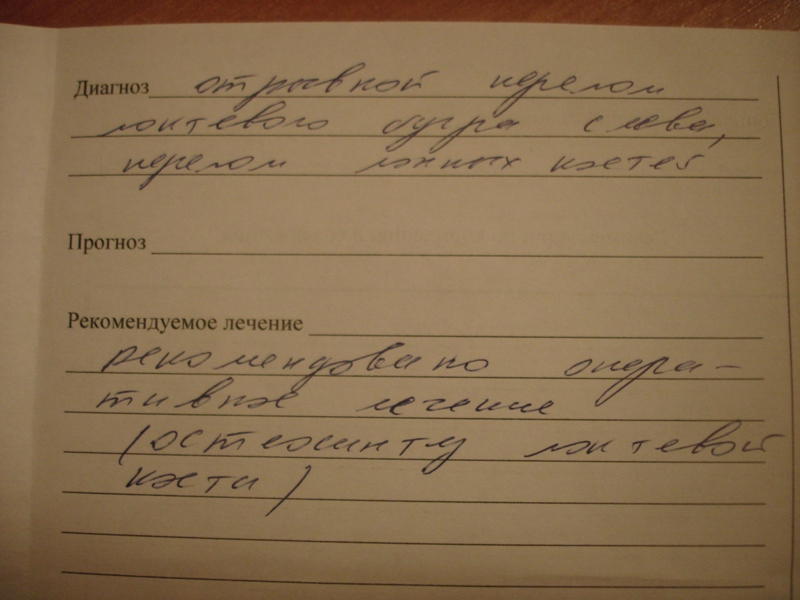 Диагноз отрывной перелом
локтевого бугра слева,
перелом лонных костей
Прогноз
Рекомендуемое лечение
рекомендовано опера-
тивное лечение
(остеосинтез локтевой
кости)